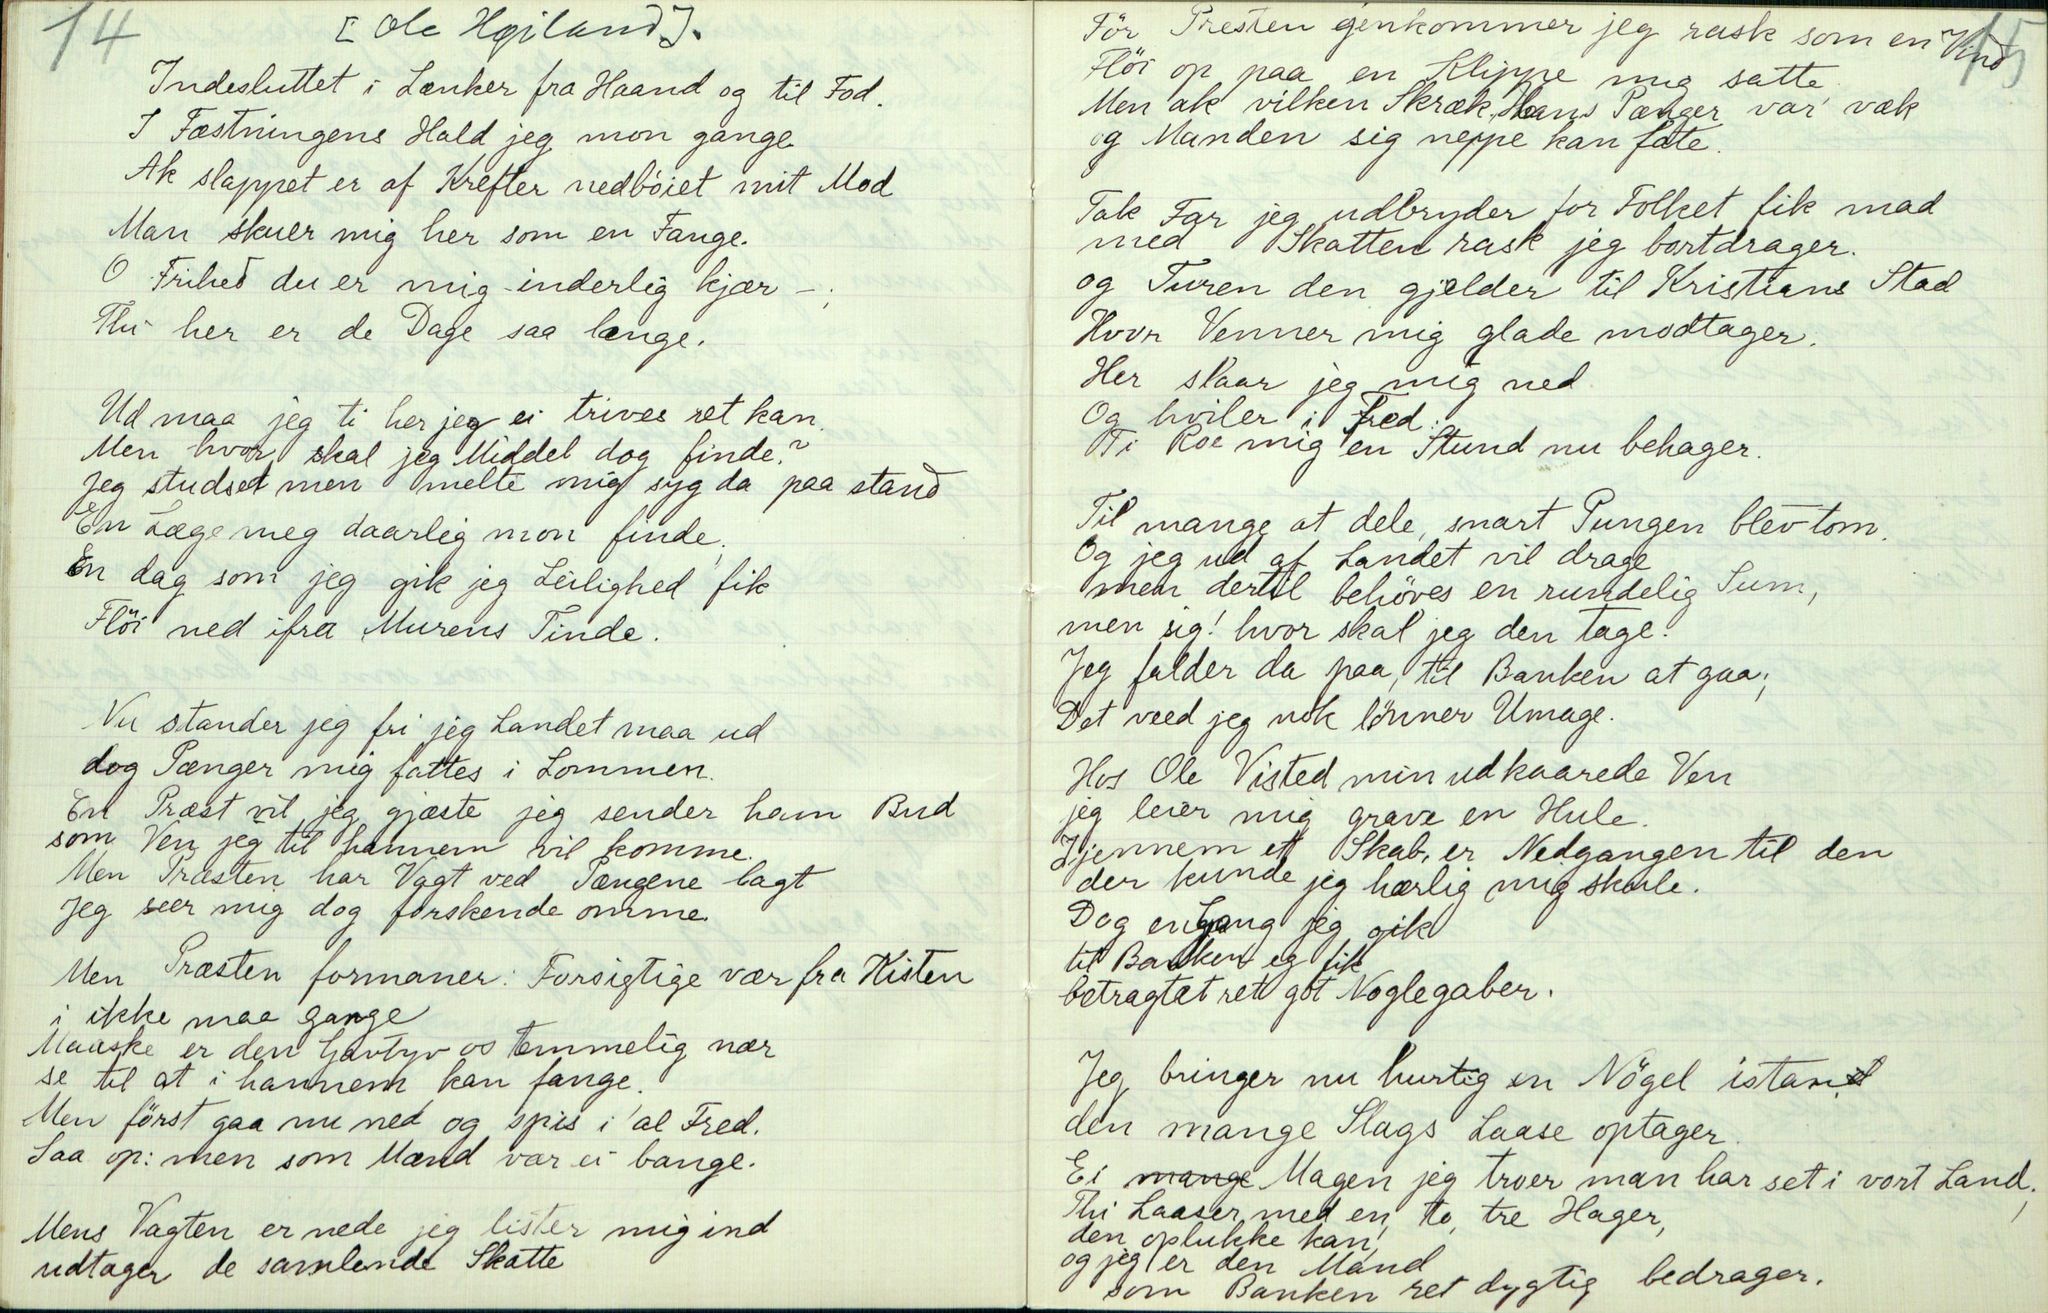 14
[Ole Høiland].
Indesluttet i Lænker fra Haand og til Fod.
I Fæstningens Hald jeg mon gange
Ak slappet er af Krefter nedböiet mit Mod
Man skuer mig her som en Fange.
O Frihed du er mig inderlig kjær –;
Thi her er de Dage saa længe.
Ud maa jeg ti her jeg ei trives ret kan.
Men hvor skal jeg Middel dog finde?
Jeg studset men melte mig syg da paa stand
En Læge meg daarlig mon finde,
En dag som jeg gik jeg Leilighed fik
Flöi ned ifra Murens Tinde.
Nu stander jeg fri jeg Landet maa ud
dog Pænger mig fattes i Lommen.
En Præst vil jeg gjæste jeg sender ham Bud
som Ven jeg til hannem vil komme.
Men Præsten har Vagt ved Pængene lagt
Jeg seer mig dog forskende omme.
Men Præsten formaner: Forsigtige vær fra Kisten
i ikke maa gange
Maaske er den Gavtyv os temmelig nær
se til at i hannem kan fange.
Men först gaa nu ned og spis i al Fred.
Saa op: men som Mænd vær ei bange.
Mens Vagten er nede jeg lister mig ind
udtager de samlende Skatte
15
För Presten igenkommer jeg rask som en Vind
Flöi op paa en Klippe mig satte.
Men ak vilken Skræk, Hans Pænger var væk
og Manden sig neppe kan fate.
Tak Far jeg udbryder for Folket fik mad
med Skatten rask jeg bortdrager.
og Turen den gjelder til Kristians Stad
Hvor Venner mig glade modtager.
Her slaar jeg mig ned
Og hviler i Fred.
Ti Roe mig en Stund nu behager.
Til mange at dele, snart Pungen blev tom.
Og jeg ud af Landet vil drage
men dertil behöves en rundelig Sum,
men sig! hvor skal jeg den tage.
Jeg falder da paa, til Banken at gaa;
Det veed jeg nok lönner Umage.
Hos Ole Visted min udkaarede Ven
jeg leier mig grave en Hule.
Igjennem et Skab, er Nedgangen til den
der kunde jeg hærlig mig skule.
Dog engang jeg gik
til Banken eg fik
betragtet ret got Noglegaber.
Jeg bringer nu hurtig en Nögel istand
den mange Slags Laase optager.
Ei mange Magen jeg troer man har set i vort Land,
Thi Laaser med en, to, tre Hager,
den oplukke kan,
og jeg er den Mand
som Banken ret dygtig bedrager.